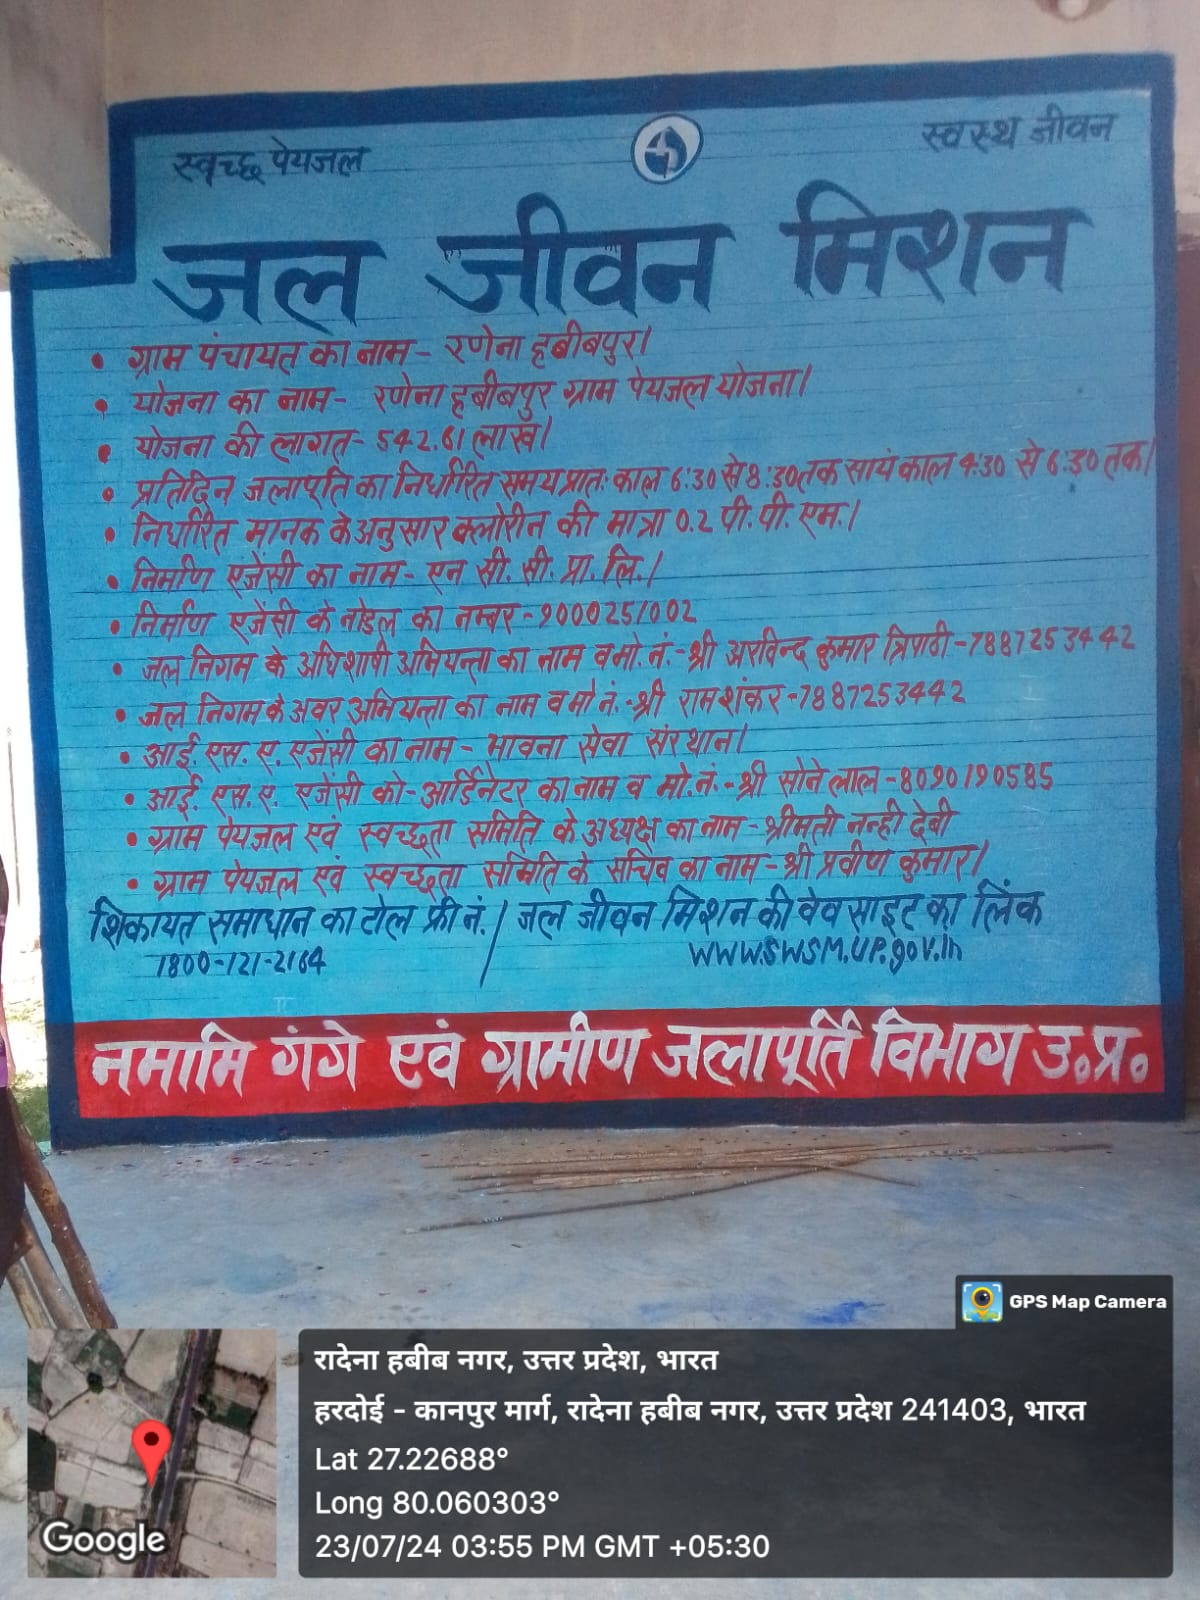 स्वच्छ पेयजल
स्वस्थ जीवन
जल जीवन मिशन
• ग्राम पंचायत का नाम - रणेना हबीबपुर।
• योजना का नाम - रणेना हबीबपुर ग्राम पेयजल योजना।
• योजना की लागत - 542.61 लाख।
• प्रतिदिन जलापूर्ति का निर्धारित समय प्रातः काल 6:30 से 8:30 तक सायं काल 4:30 से 6:30 तक।
• निर्धारित मानक के अनुसार क्लोरीन की मात्रा 0.2 पी.पी.एम.।
• निर्माण एजेंसी का नाम - एन सी. सी. प्रा. लि.।
• निर्माण एजेंसी के नोडल का नम्बर - 9000251002
• जल निगम के अधिशाषी अभियन्ता का नाम व मो. नं. - श्री अरविन्द कुमार त्रिपाठी - 7887253442
• जल निगम के अवर अभियन्ता का नाम व मो नं. - श्री रामशंकर - 7887253442
• आई. एस. ए. एजेंसी का नाम - भावना सेवा संस्थान।
• आई. एस. ए. एजेंसी को-आर्डिनेटर का नाम व मो.नं. - श्री सोने लाल - 8090190585
• ग्राम पेयजल एवं स्वच्छता समिति के अध्यक्ष का नाम - श्रीमती नन्ही देवी
• ग्राम पेयजल एवं स्वच्छता समिति के सचिव का नाम - श्री प्रवीण कुमार।
शिकायत समाधान का टोल फ्री नं. / जल जीवन मिशन की वेव साइट का लिंक
1800-121-2164 www.swsm.up.gov.in
नमामि गंगे एवं ग्रामीण जलापूर्ति विभाग उ०प्र०
GPS Map Camera
रादेना हबीब नगर, उत्तर प्रदेश, भारत
हरदोई - कानपुर मार्ग, रादेना हबीब नगर, उत्तर प्रदेश 241403, भारत
Lat 27.22688°
Long 80.060303°
23/07/24 03:55 PM GMT +05:30
Google